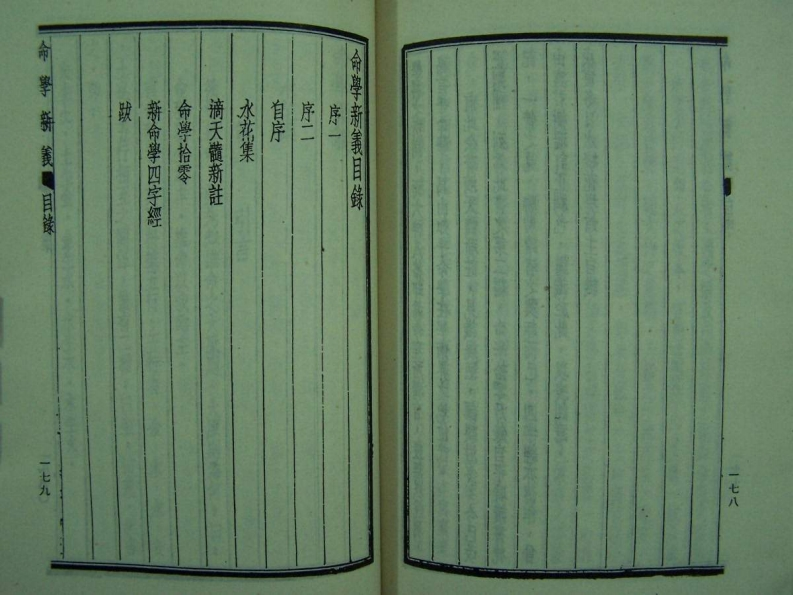 一七八
命學新義目錄
序一
序二
自序
水花集
滴天髓新註
命學拾零
新命學四字經
跋
命學新義 目錄
一七九